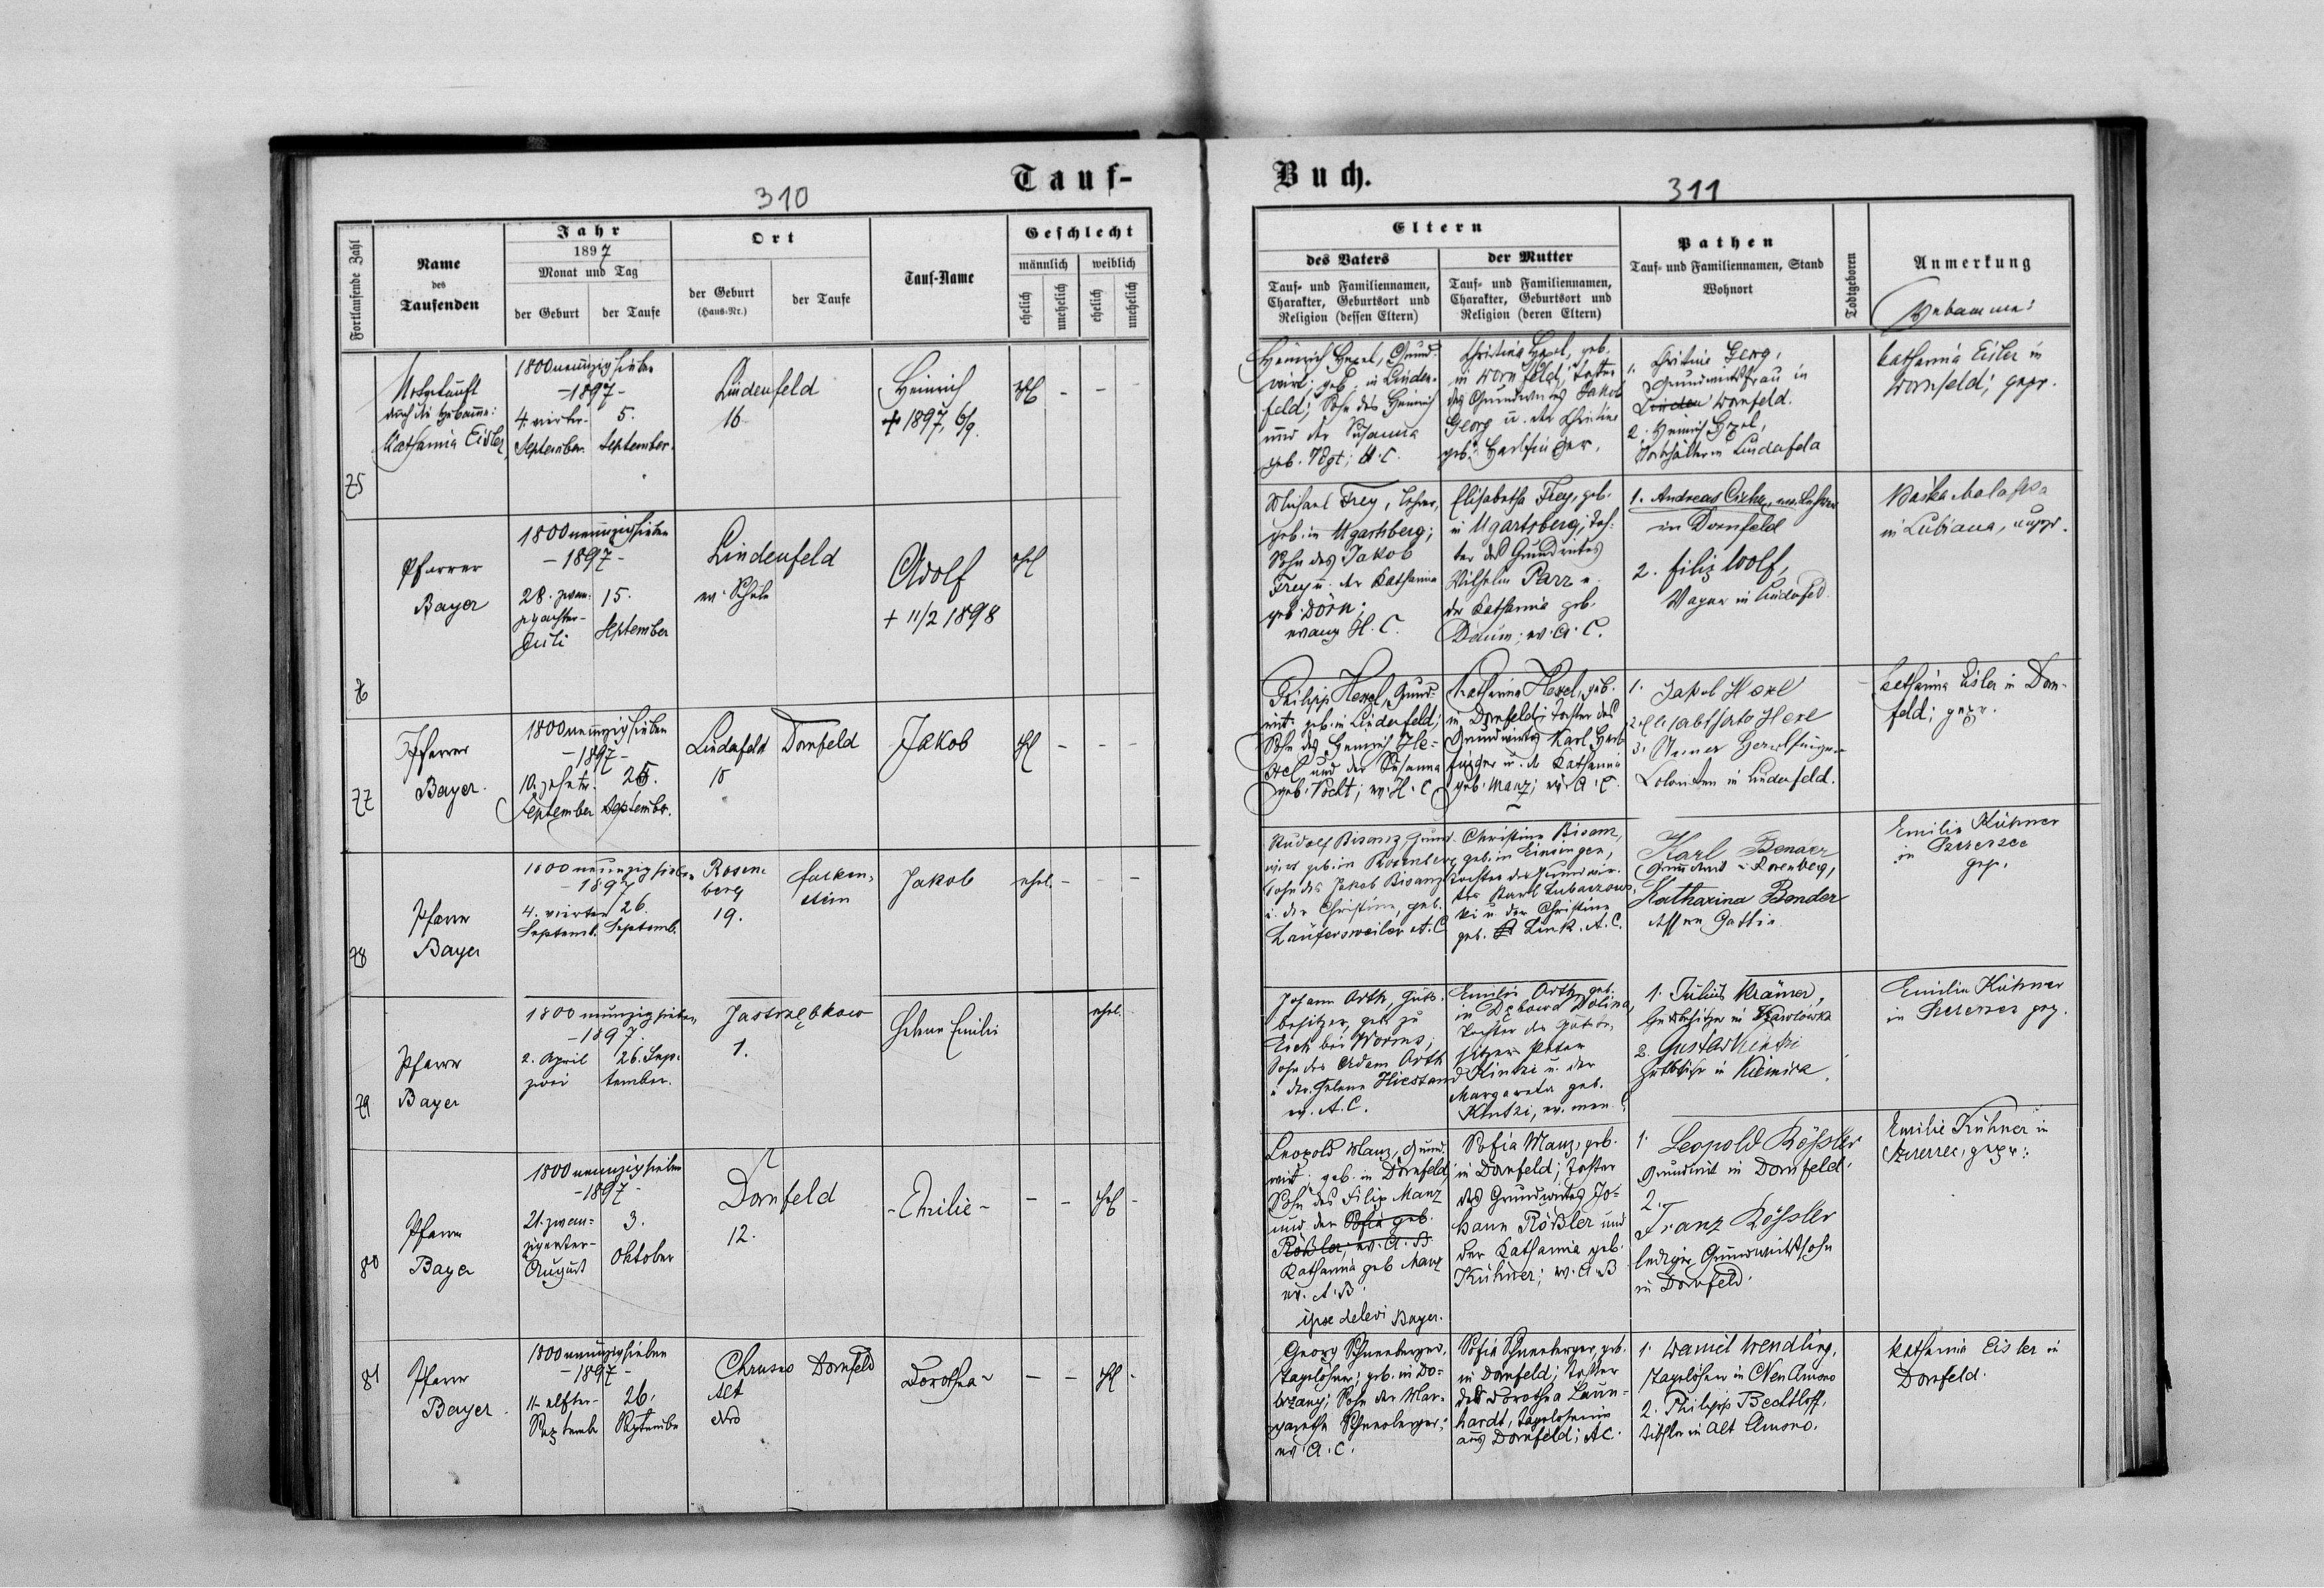 Tauf-
310
Fortlaufende Zahl
Name
des
Taufenden
Jahr
1897
Monat und Tag
der Geburt
der Taufe
Ort
der Geburt
(Haus-Nr.)
der Taufe
Tauf-Name
Geschlecht
männlich
weiblich
ehelich
unehelich
ehelich
unehelich
75
Notgetauft
durch die Hebamme:
Katharina Eisler
1800neunzigsieben
-1897-
4. vierter-
September.
5.
September.
Lindenfeld
16
Heinrich
+ 1897, 6/9.
ehl
- - -
76
Pfarrer
Bayer
1800neunzigsieben
-1897-
28. zwan-
zigachter-
Juli
15.
September
Lindenfeld
ev. Schule
Adolf
+ 11/2 1898
ehl
77
Pfarrer
Bayer.
1800neunzigsieben
-1897-
10. zehnter.
September
26.
September.
Lindenfeld
15
Dornfeld
Jakob
ehl
- - -
78
Pfarrer
Bayer
1800neunzigsieben
-1897
4. vierter
Septemb.
26.
Septemb.
Rosen-
berg
19.
Falken-
stein
Jakob
ehel.
- - -
79
Pfarrer
Bayer
1800neunzigsieben
-1897.
2. April
zwei
26. Sep-
tember.
Jastrzębkow
1.
Helene Emilie
ehel.
80
Pfarrer
Bayer
1800neunzigsieben
-1897-
21. zwan-
zigerster-
August
3.
Oktober
Dornfeld
12.
-Emilie-
- - ehl -
81
Pfarrer
Bayer.
1800neunzigsieben
-1897-
11. elfter-
September
26.
September
Chrusno
Alt
Dornfeld
Dorothea-
- - ehl -
Buch.
311
Eltern
des Vaters
Tauf- und Familiennamen,
Charakter, Geburtsort und
Religion (dessen Eltern)
der Mutter
Tauf- und Familiennamen,
Charakter, Geburtsort und
Religion (deren Eltern)
Pathen
Tauf- und Familiennamen, Stand
Wohnort
Todtgeboren
Anmerkung
Hebamme:
Heinrich Hexel, Grund-
wirt; geb. in Linden-
feld; Sohn des Heinrich
und der Susanna
geb. Vogt; H.C.
Christina Hexel, geb.
in Dornfeld, Tochter
des Grundwirtes Jakob
Georg u. der Christine
geb. Harlfinger.
1. Christine Georg,
Grundwirtsfrau in
Linden Dornfeld.
2. Heinrich Hexel,
in Lindenfeld
Katharina Eisler in
Dornfeld; gepr.
Michael Frey, Lehrer,
geb. in Ugartsberg;
Sohn des Jakob
Frey u. der Katharina
geb. Dörn;
evang. H.C.
Elisabetha Frey, geb.
in Ugartsberg; Toch-
ter des Grundwirtes
Wilhelm Parr u.
der Katharina geb.
Daum; ev. A.C.
1. Andreas Cichy, ev. Lehrer
in Dornfeld
2. Filip Wolf,
in Lindenfeld.
Baśka
in Lubiana, ungepr.
Philipp Hexel, Grund-
wirt. geb. in Lindenfeld;
Sohn des Heinrich He-
xel und der Susanna
geb. Vocht; ev. H.C.
Katharina Hexel, geb.
in Dornfeld; Tochter des
Grundwirtes Karl Harl-
finger u. der Katharina
geb. Manz; ev. A.C.
1. Jakob Hexel
2. Elisabetha Hexel
3.
Colonisten in Lindenfeld.
Katharina Eisler in Dorn-
feld; gepr.
Rudolf Bisanz Grund-
wirt geb. in Rosenberg
Sohn des Jakob Bisanz
u. der Christine, geb.
Laufersweiler A.C.
Christine Bisanz,
geb. in Einsingen,
Tochter des Grundwir-
tes Karl Lubaczows-
ki u. der Christine
geb. Link. A.C.
Karl Bender
Grundwirt in Rosenberg,
Katharina Bender
dessen Gattin
Emilie Kühner
in Szczerzec
gepr.
Johann Orth, Guts-
besitzer, geb. zu
Eich bei Worms;
Sohn des Adam Orth
u. der Helene Hiestand
ev. A.C.
Emilie Orth, geb.
in Dębowa Dolina,
Tochter des Gutsbe-
sitzers Peter
Kintzi u. der
Margareta geb.
Kintzi, ev. men. C.
1. Julius Krämer,
Gutsbesitzer in
2. Gustav Kintzi
Gutsbesitzer in Kiernica.
Emilie Kühner
in Szczerzec gepr.
Leopold Manz, Grund-
wirt; geb. in Dornfeld;
Sohn des Filip Manz
und der Sofia geb.
Rößler, ev. A.B.
Katharina geb. Manz
ev. A.B.
ipse delevi Bayer.
Sofia Manz, geb.
in Dornfeld; Tochter
des Grundwirtes Jo-
hann Rößler und
der Katharina geb.
Kühner; ev. A.B.
1. Leopold Rößler
Grundwirt in Dornfeld.
2.
Franz Rößler
lediger Grundwirtssohn
in Dornfeld.
Emilie Kühner in
Szczerzec, gepr.
Georg Schneeberger,
Tagelöhner; geb. in Do-
brzany; Sohn der Mar-
garetha Schneeberger;
ev. A.C.
Sofia Schneeberger, geb.
in Dornfeld; Tochter
der Dorothea Laun-
hardt, Tagelöhnerin
aus Dornfeld; A.C.
1. Daniel Wendling,
Tagelöhner in Neu Chrusno
2. Philipp Bechtloff,
Tischler in Alt Chrusno.
Katharina Eisler in
Dornfeld.